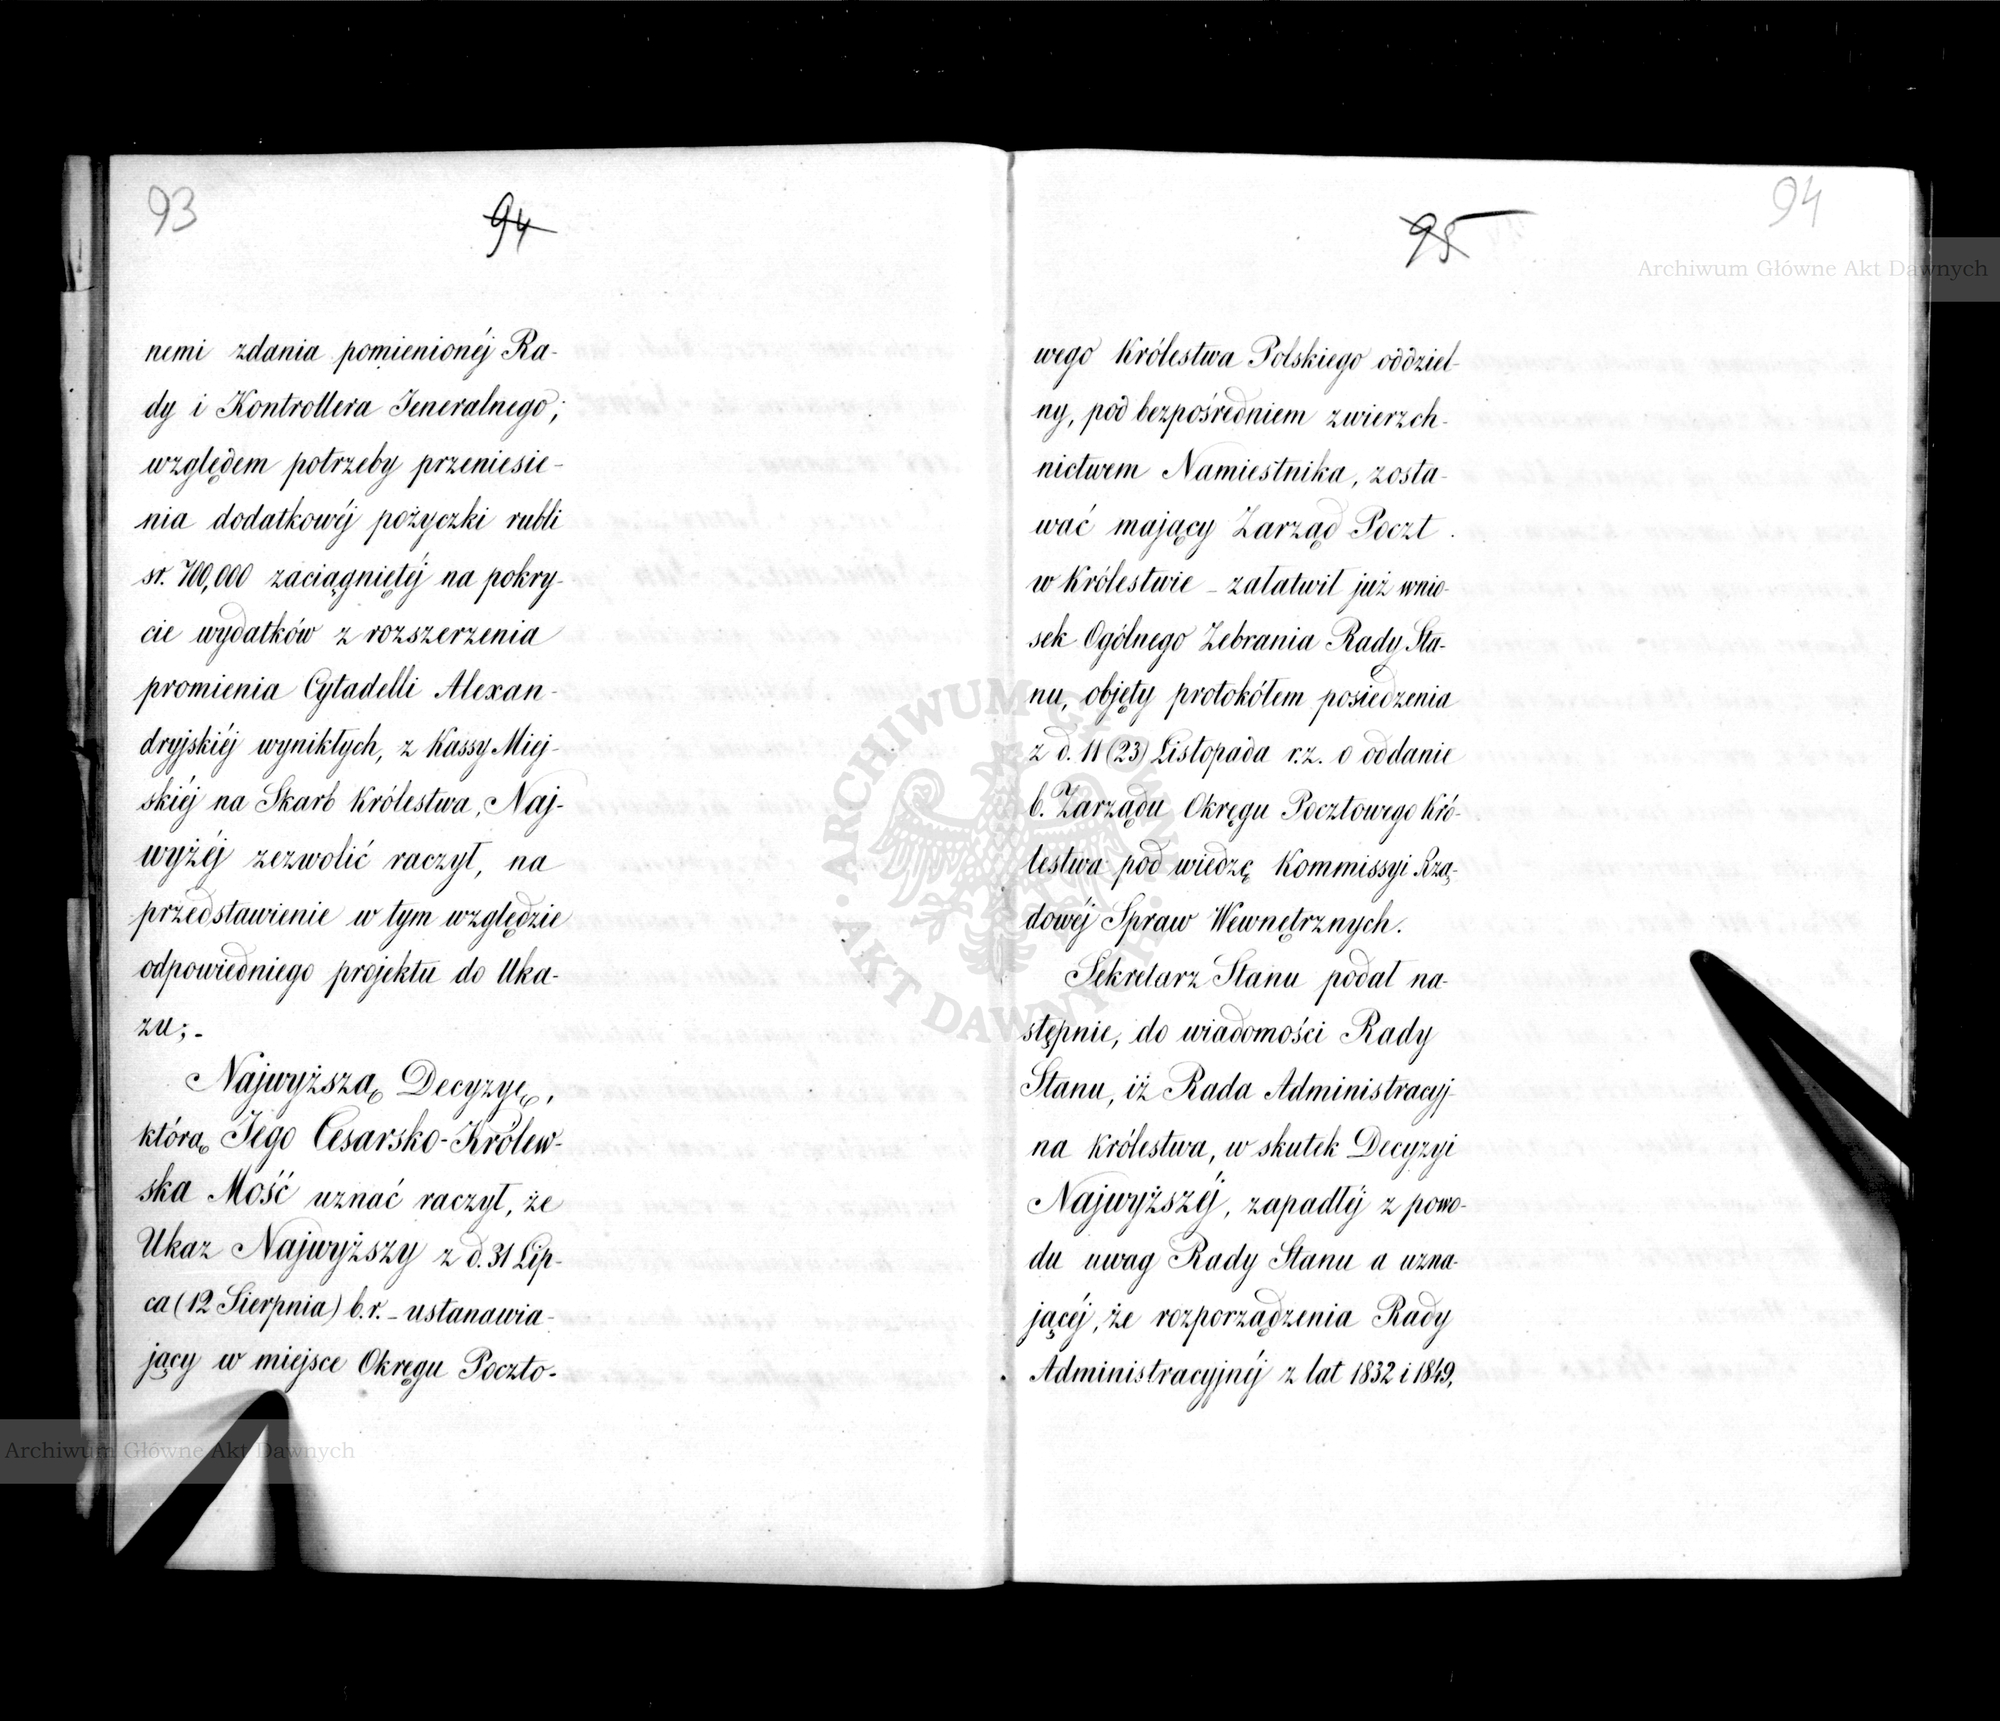 93
94
nemi zdania pomienionéj Ra-
dy i Kontrollera Jeneralnego;
względem potrzeby przeniesie-
nia dodatkowéj pożyczki rubli
sr. 700,000 zaciągniętéj na pokry-
cie wydatków z rozszerzenia
promienia Cytadelli Alexan-
dryjskiéj wynikłych, z Kassy Miej-
skiéj na Skarb Królestwa, Naj-
wyżéj zezwolić raczył, na
przedstawienie w tym względzie
odpowiedniego projektu do Uka-
zu;-
Najwyższą Decyzyę,
którą Jego Cesarsko-Królew-
ska Mość uznać raczył, że
Ukaz Najwyższy z d. 31 Lip-
ca (12 Sierpnia) b.r. - ustanawia-
jący w miejsce Okręgu Poczto-
94
95
wego Królestwa Polskiego oddziel-
ny, pod bezpośredniem zwierzch-
nictwem Namiestnika, zosta-
wać mający Zarząd Poczt
w Królestwie - załatwił już wnio-
sek Ogólnego Zebrania Rady Sta-
nu, objęty protokółem posiedzenia
z d. 11 (23) Listopada r.z. o oddanie
b. Zarządu Okręgu Pocztowego Kró-
lestwa pod wiedzę Kommissyi Rzą-
dowéj Spraw Wewnętrznych.
Sekretarz Stanu podał na-
stępnie, do wiadomości Rady
Stanu, iż Rada Administracyj-
na Królestwa, w skutek Decyzyi
Najwyższéj, zapadłéj z powo-
du uwag Rady Stanu a uzna-
jącéj, że rozporządzenia Rady
Administracyjnéj z lat 1832 i 1849,
Archiwum Główne Akt Dawnych
ARCHIWUM GŁÓWNE AKT DAWNYCH
Archiwum Główne Akt Dawnych